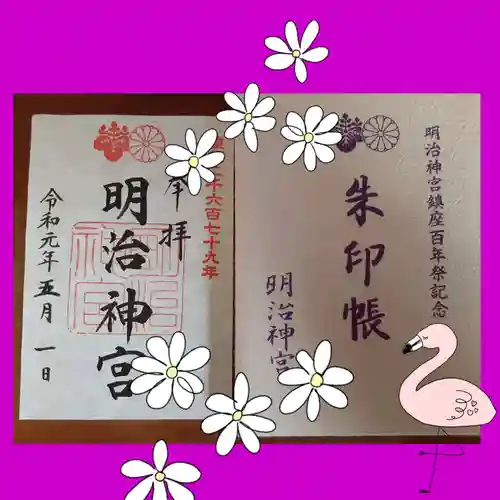 明治神宮鎮座百年祭記念
朱印帳
明治神宮
六百七十九年
拝
明治神宮
令和元年五月一日